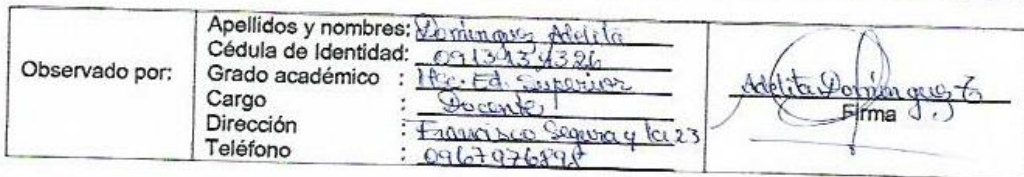 Observado por:
Apellidos y nombres: Dominguez Adelita
Cédula de Identidad: 0913434326
Grado académico : Ed. Superior
Cargo : Docente
Dirección : Francisco Segura y la 23
Teléfono : 0967976898
Adelita Dominguez
Firma